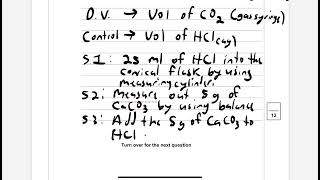 D.V. → Vol of CO₂ (gas syringe)
Control → Vol of HCl(aq)
S1: 25 ml of HCl into the
conical flask by using
measuring cylinder
S2: Measure out 5g of
CaCO₃ by using balance
S3: Add the 5g of CaCO₃ to
HCl.
12
Turn over for the next question